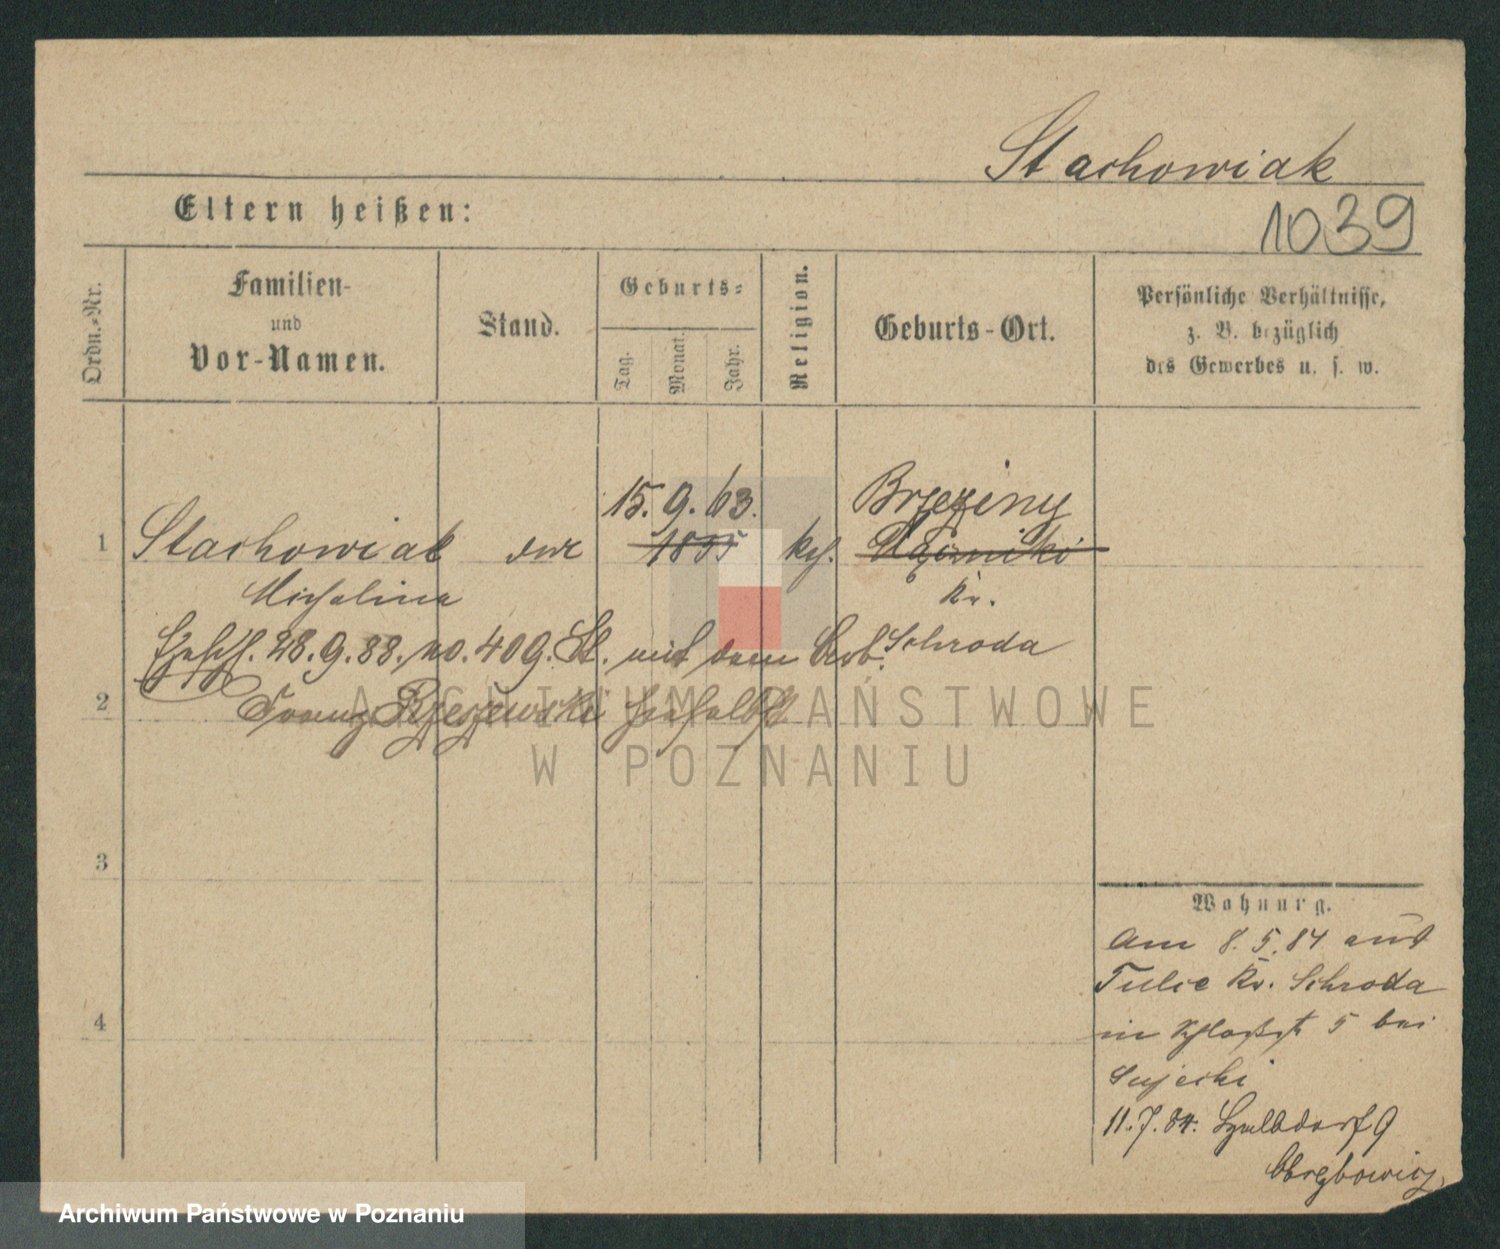 Stachowiak
Eltern heißen:
1039
Ordn.-Nr.
Familien-
und
Vor-Namen.
Stand.
Geburts-
Tag.
Monat.
Jahr.
Religion.
Geburts-Ort.
Persönliche Verhältnisse,
z. B. bezüglich
des Gewerbes u. s. w.
15. 9. 63.
Brzeziny
1
Stachowiak
1855
kath.
Michalina
Kr.
28.9.88. no. 409. St. mit dem Arb. Schroda
2
Franz Rzeszewski hieselbst
ARCHIWUM PAŃSTWOWE
W POZNANIU
3
Wohnung.
Am 8. 5. 84 aus
Tulce Kr. Schroda
4
in Schloßst 5 bei
Sujecki
11. 7. 84. 9
Archiwum Państwowe w Poznaniu